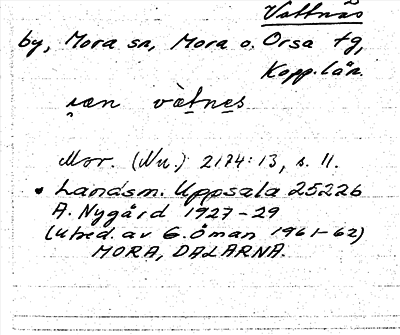 Vattnäs
by, Mora sn, Mora o. Orsa tg,
Kopp. län.
vàtnes
Mor. (Nu.) 2174:13, s. 11.
• Landsm. Uppsala 25226
A. Nygård 1927-29
(utred. av G. Öman 1961-62)
MORA, DALARNA.